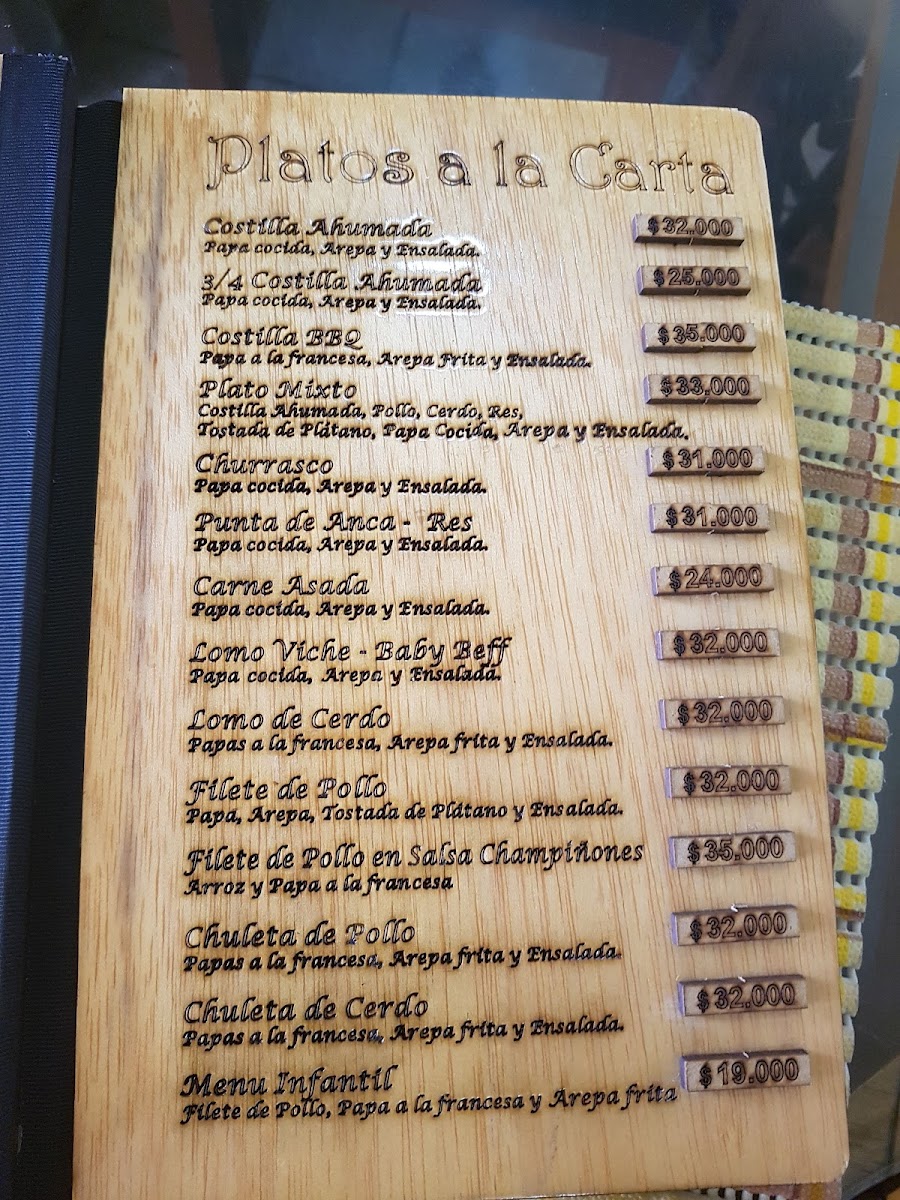 Platos a la Carta
Costilla Ahumada $32.000
Papa cocida, Arepa y Ensalada.
3/4 Costilla Ahumada $25.000
Papa cocida, Arepa y Ensalada.
Costilla BBQ $35.000
Papa a la francesa, Arepa Frita y Ensalada.
Plato Mixto $33.000
Costilla Ahumada, Pollo, Cerdo, Res,
Tostada de Plátano, Papa Cocida, Arepa y Ensalada.
Churrasco $31.000
Papa cocida, Arepa y Ensalada.
Punta de Anca - Res $31.000
Papa cocida, Arepa y Ensalada.
Carne Asada $24.000
Papa cocida, Arepa y Ensalada.
Lomo Viche - Baby Beff $32.000
Papa cocida, Arepa y Ensalada.
Lomo de Cerdo $32.000
Papas a la francesa, Arepa frita y Ensalada.
Filete de Pollo $32.000
Papa, Arepa, Tostada de Plátano y Ensalada.
Filete de Pollo en Salsa Champiñones $35.000
Arroz y Papa a la francesa
Chuleta de Pollo $32.000
Papas a la francesa, Arepa frita y Ensalada.
Chuleta de Cerdo $32.000
Papas a la francesa, Arepa frita y Ensalada.
Menu Infantil $19.000
Filete de Pollo, Papa a la francesa y Arepa frita